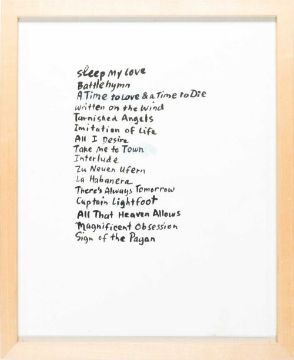 Sleep My Love
Battlehymn
A Time to Love & a Time to Die
Written on the Wind
Tarnished Angels
Imitation of Life
All I Desire
Take Me to Town
Interlude
Zu Neuen Ufern
La Habanera
There's Always Tomorrow
Captain Lightfoot
All That Heaven Allows
Magnificent Obsession
Sign of the Pagan